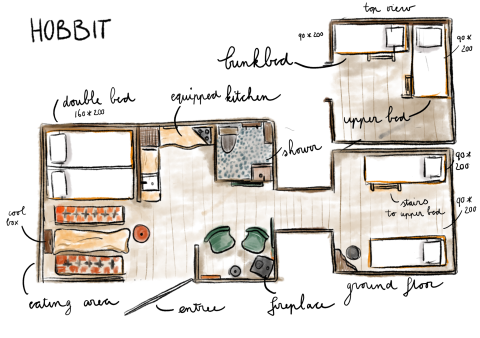 HOBBIT
top view
90 x 200
90 x 200
bunkbed
double bed
160 x 200
equipped kitchen
upper bed
shower
90 x 200
stairs
to upper bed
90 x 200
cool
box
eating area
entree
fireplace
ground floor